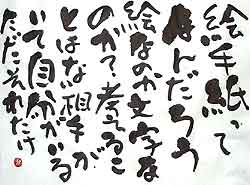 絵手紙って
なんだろう
絵なのか文字な
のか？考えるこ
とはない相手が
いて自分がいる
ただそれだけ